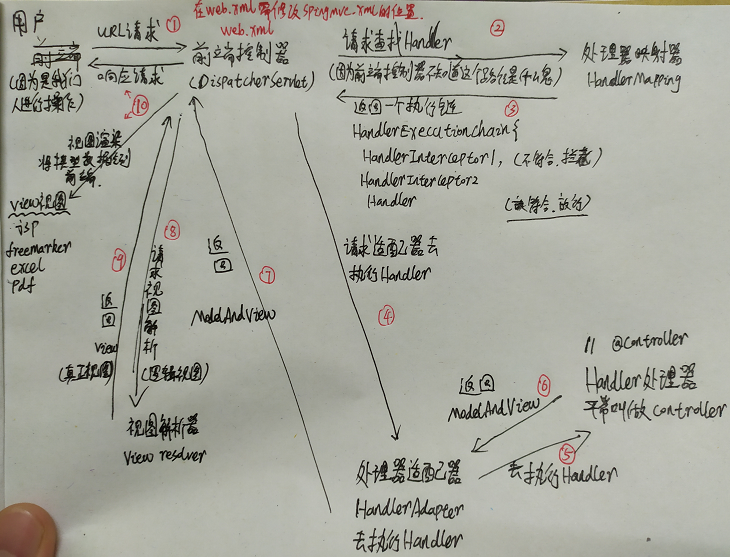 在web.xml需修改spingmvc.xml的位置.
web.xml
①
用户
URL请求
前端控制器
(DispatcherServlet)
响应请求
(因为是我们
人进行操作)
⑩
请求查找Handler
②
(因为前端控制器不知道这个路径是什么鬼)
处理器映射器
HandlerMapping
返回一个执行链
③
HandlerExecutionchain{
HandlerInterceptor1, (不符合,拦截)
HandlerInterceptor2
Handler
(符合,放行)
视图渲染
将模型数据
前端.
View视图
jsp
freemarker
excel
Pdf
⑨
返回
View
(真正视图)
⑧
请求视图解析
(逻辑视图)
视图解析器
View resolver
返回
⑦
ModelAndView
请求适配器去
执行Handler
④
// @Controller
Handler处理器
平常叫做controller
返回
⑥
ModelAndView
⑤
去执行Handler
处理器适配器
HandlerAdapter
去执行Handler